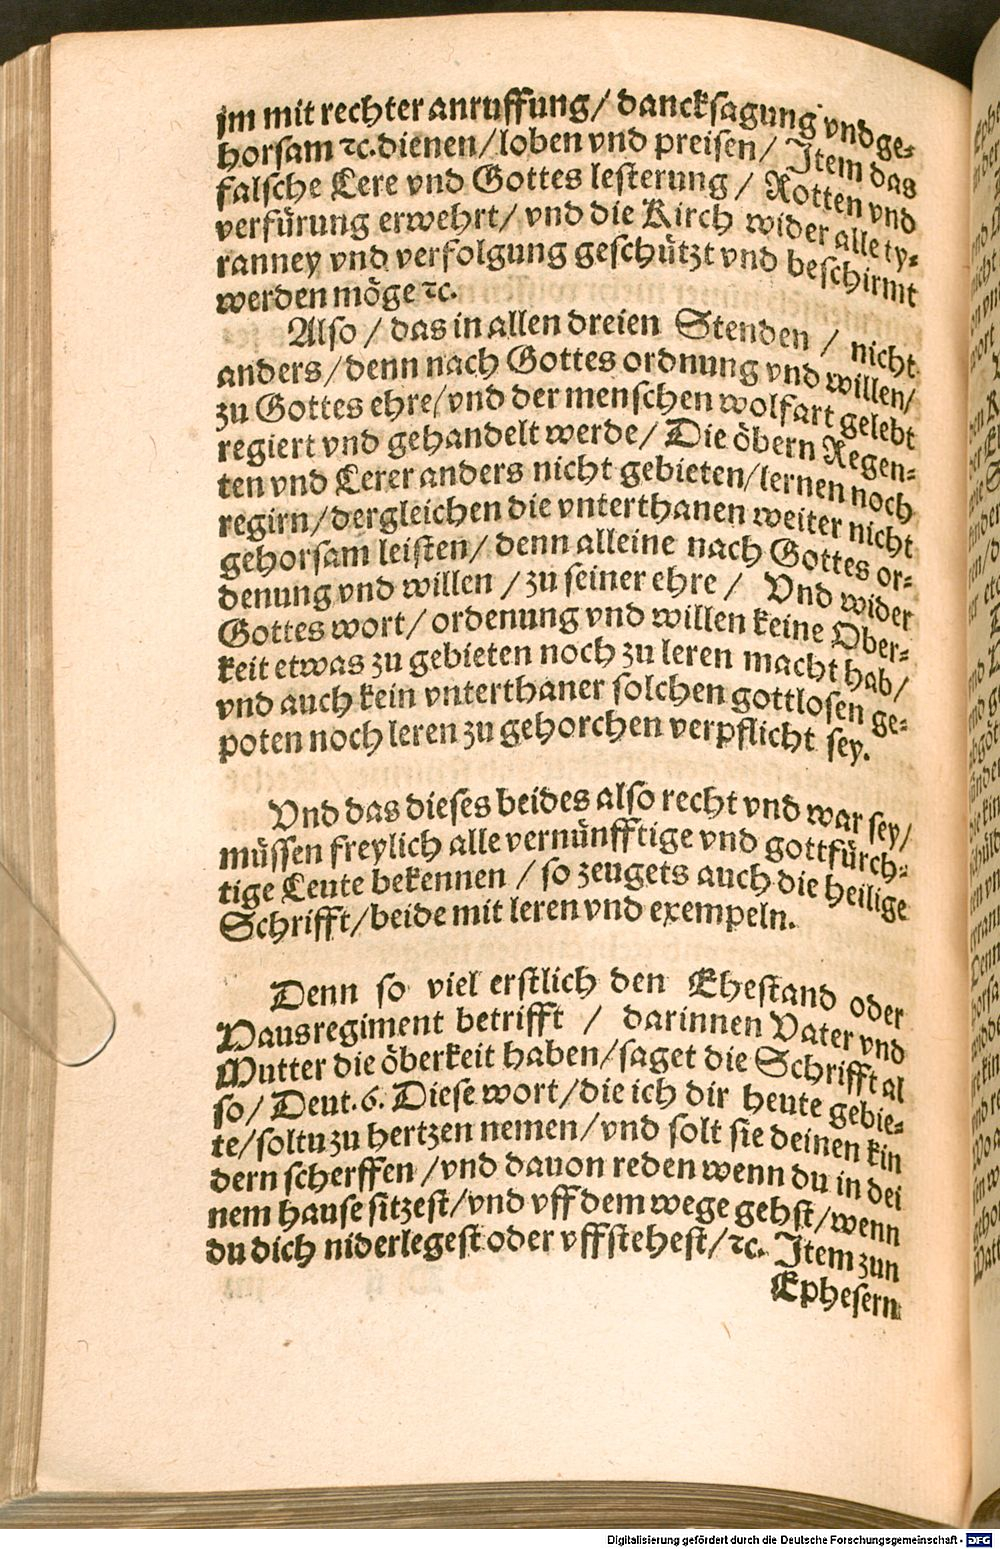 jm mit rechter anruffung/ dancksagung vnd ge-
horsam ꝛc. dienen/ loben vnd preisen/ Item das
falsche Lere vnd Gottes lesterung/ Rotten vnd
verfürung erwehrt/ vnd die Kirch wider alle ty-
ranney vnd verfolgung geschützt vnd beschirmt
werden möge ꝛc.
Also/ das in allen dreien Stenden/ nicht
anders/ denn nach Gottes ordnung vnd willen/
zu Gottes ehre/ vnd der menschen wolfart gelebt
regiert vnd gehandelt werde/ Die öbern Regen-
ten vnd Lerer anders nicht gebieten/ lernen noch
regirn/ dergleichen die vnterthanen weiter nicht
gehorsam leisten/ denn alleine nach Gottes or-
denung vnd willen/ zu seiner ehre/ Vnd wider
Gottes wort/ ordenung vnd willen keine Ober-
keit etwas zu gebieten noch zu leren macht hab/
vnd auch kein vnterthaner solchen gottlosen ge-
poten noch leren zu gehorchen verpflicht sey.
Vnd das dieses beides also recht vnd war sey/
müssen freylich alle vernünfftige vnd gottfürch-
tige Leute bekennen/ so zeugets auch die heilige
Schrifft/ beide mit leren vnd exempeln.
Denn so viel erstlich den Ehestand oder
Hausregiment betrifft/ darinnen Vater vnd
Mutter die öberkeit haben/ saget die Schrifft al
so/ Deut. 6. Diese wort/ die ich dir heute gebie-
te/ soltu zu hertzen nemen/ vnd solt sie deinen kin
dern scherffen/ vnd dauon reden wenn du in dei
nem hause sitzest/ vnd vff dem wege gehst/ wenn
du dich niderlegest oder vffstehest/ ꝛc. Item zun
Ephesern
Digitalisierung gefördert durch die Deutsche Forschungsgemeinschaft - DFG